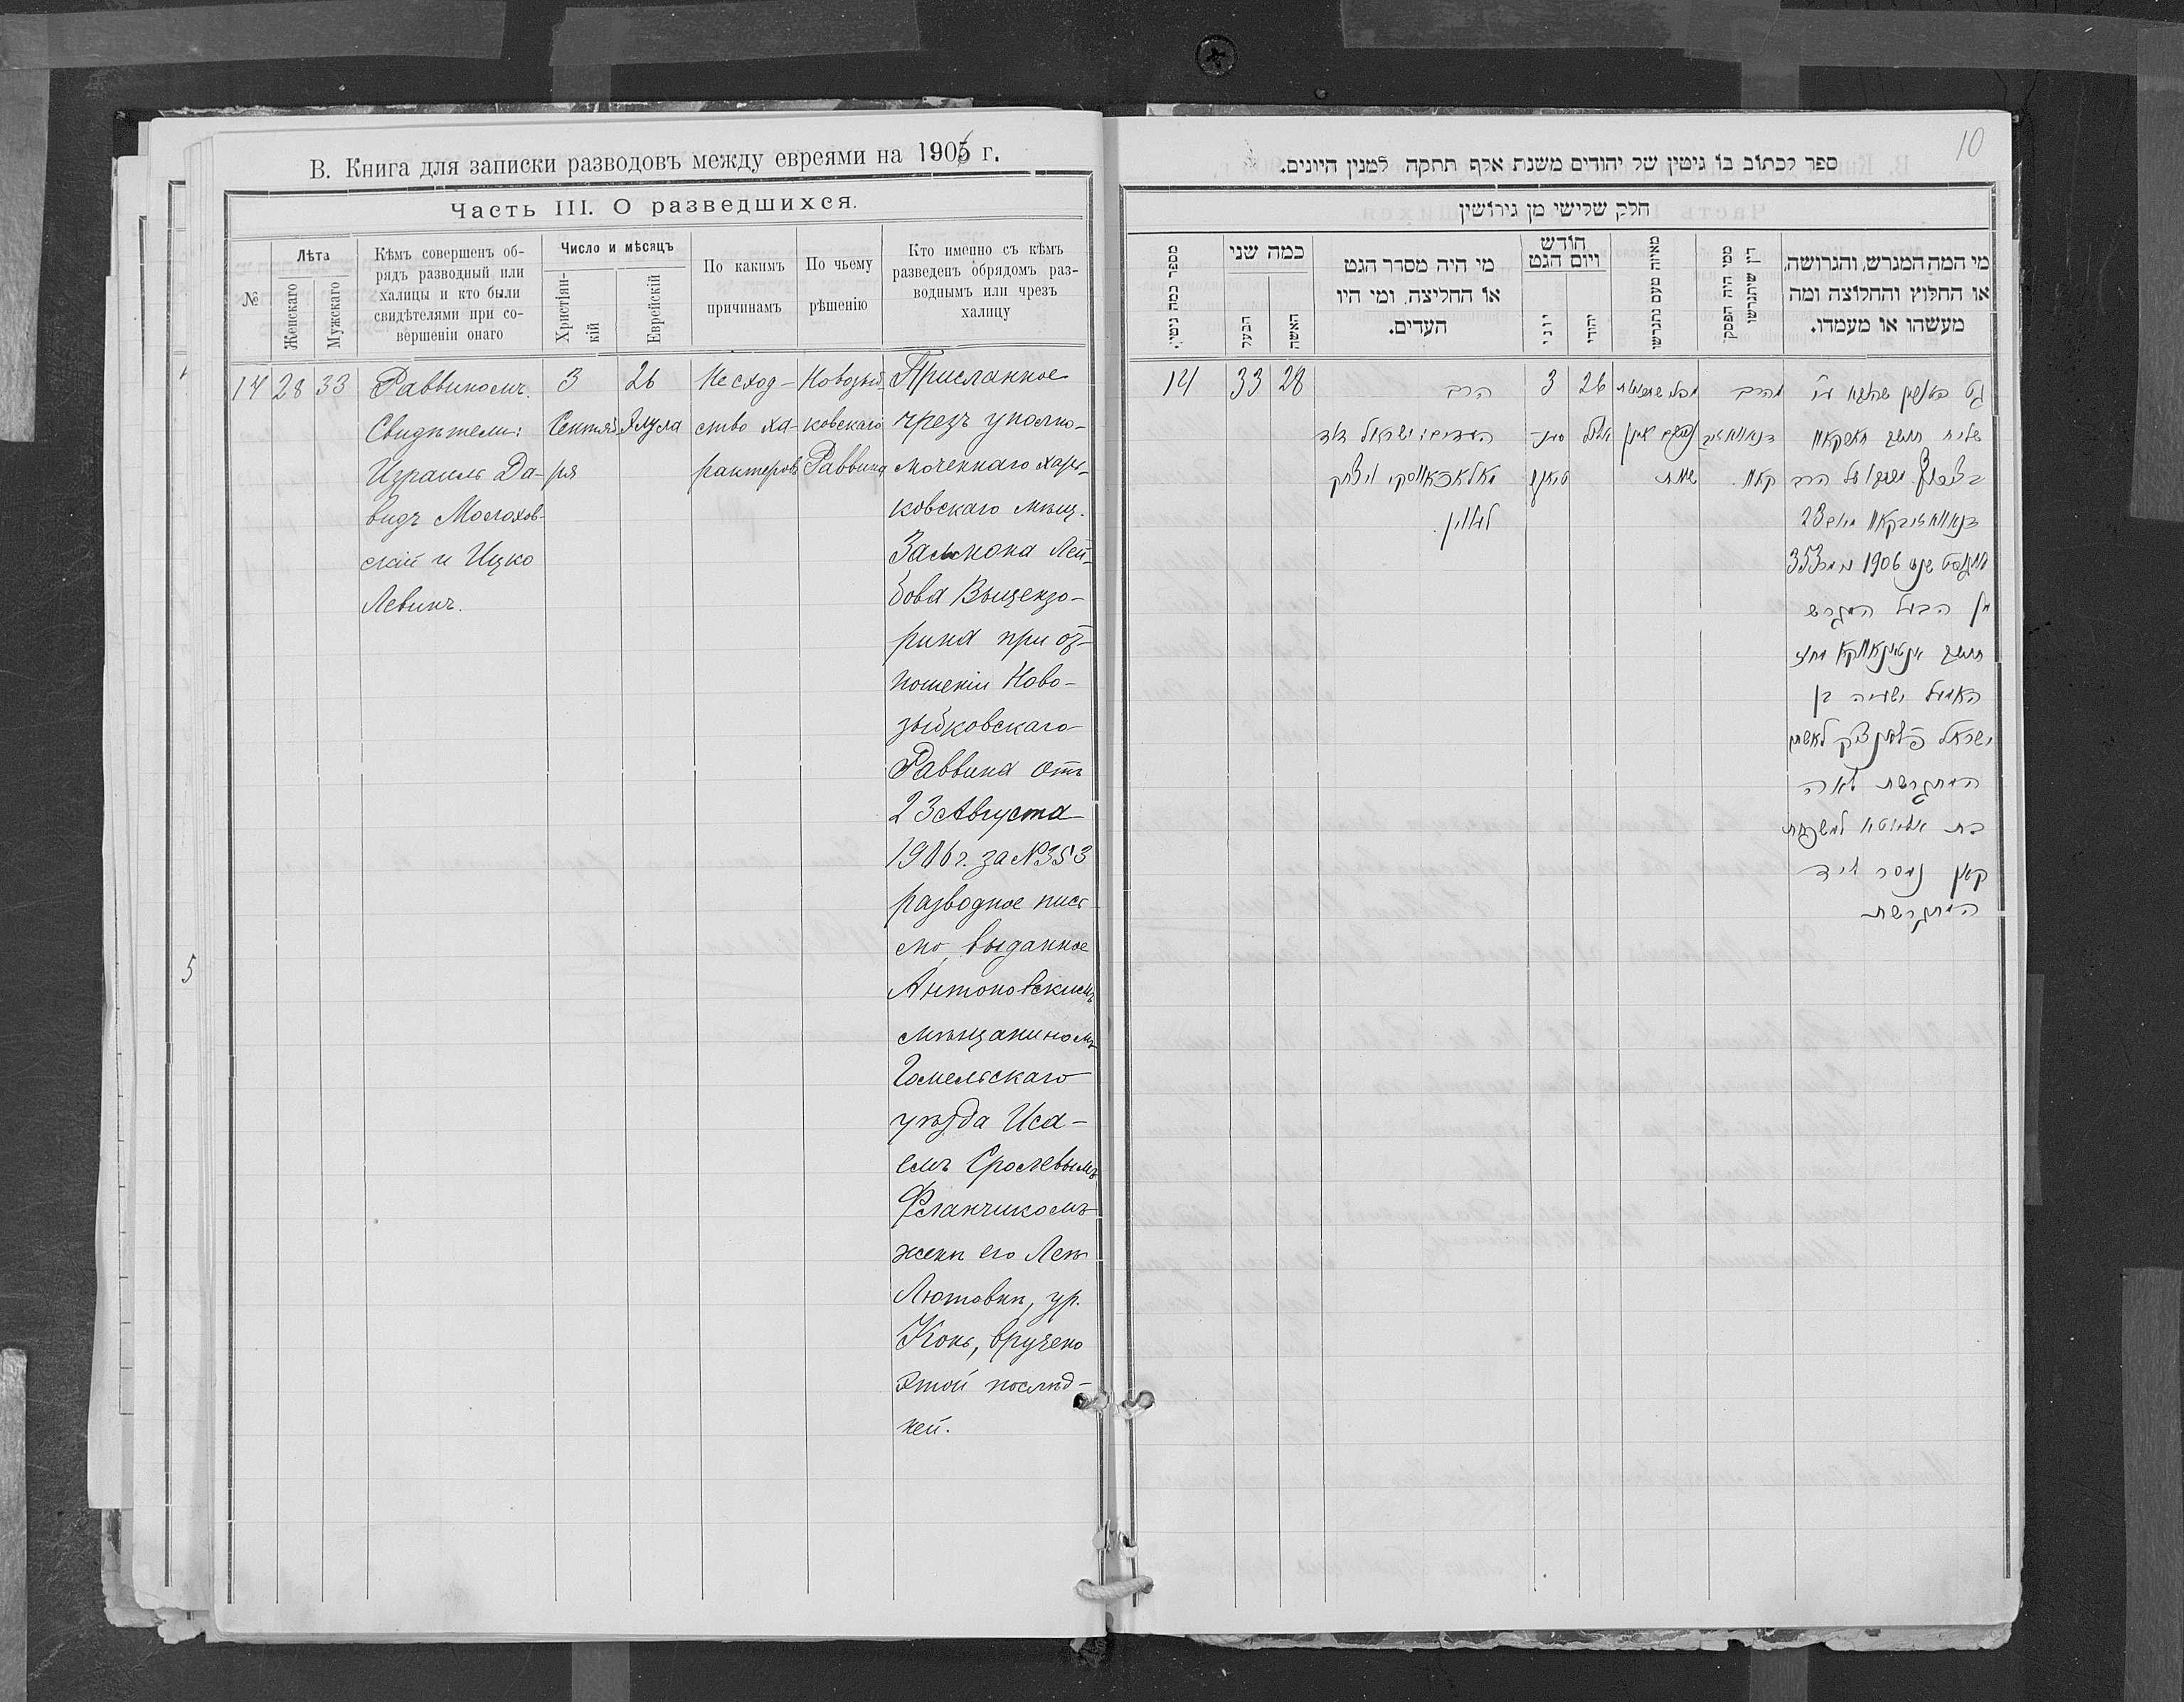 В. Книга для записки разводовъ между евреями на 1906 г.
Часть III. О разведшихся.
№
Лѣта
Женскаго
Мужскаго
Кѣмъ совершенъ об-
рядъ разводный или
халицы и кто были
свидѣтелями при со-
вершеніи онаго
Число и мѣсяцъ
Христіян-
кій
Еврейскій
По какимъ
причинамъ
По чьему
рѣшенію
Кто именно съ кѣмъ
разведенъ обрядомъ раз-
воднымъ или чрезъ
халицу
14
28
33
Раввиномъ.
Свидѣтели:
Израиль Да-
видъ Молохов-
скій и Ицко
Левинъ.
3
Сентяб
ря
26
Элула
Несход-
ство ха-
рактеровъ
Новозыб
ковскаго
Раввина
Присланное
чрезъ уполно-
моченнаго харь-
ковскаго мѣщ.
Залмона Лей-
бова
рина при от-
ношеніи Ново-
зыбковскаго
Раввина отъ
23 Августа
1906 г. за № 353
разводное пись
мо, выданное
Антоновскимъ
мѣщаниномъ
Гомельскаго
уѣзда Иса-
емъ Сролевымъ
Фланчикомъ
женѣ его Леѣ
Лютовнѣ, ур.
Конъ, вручено
этой послѣд-
ней.
5
10
ספר לכתוב בו גיטין של יהודים משנת אלף תתקה למנין היונים.
חלק שלישי מן גירושין
מספר כמה גיטין.
כמה שני
הבעל
האשה
מי היה מסדר הגט
או החליצה. ומי היו
העדים.
חודש
ויום הגט
יוני
יהודי
מאיזה טעם נתגרשו
ממי היה הפסק
דין שיתגרשו
מי המה המגרש, והגרושה,
או החלוץ והחלוצה ומה
מעשהו או מעמדו.
14
33
28
הרב
העדים: ישראל דוד
מאלאכאווסקי ויצחק
לעווין.
3
26
אלול
מהרב
שליח
הרב
23
שנת 1906 353
הבעל המגרש
ישעיה בן
ישראל לאשתו
המתגרשת לאה
בת
קאן נמסר ליד
המתגרשת